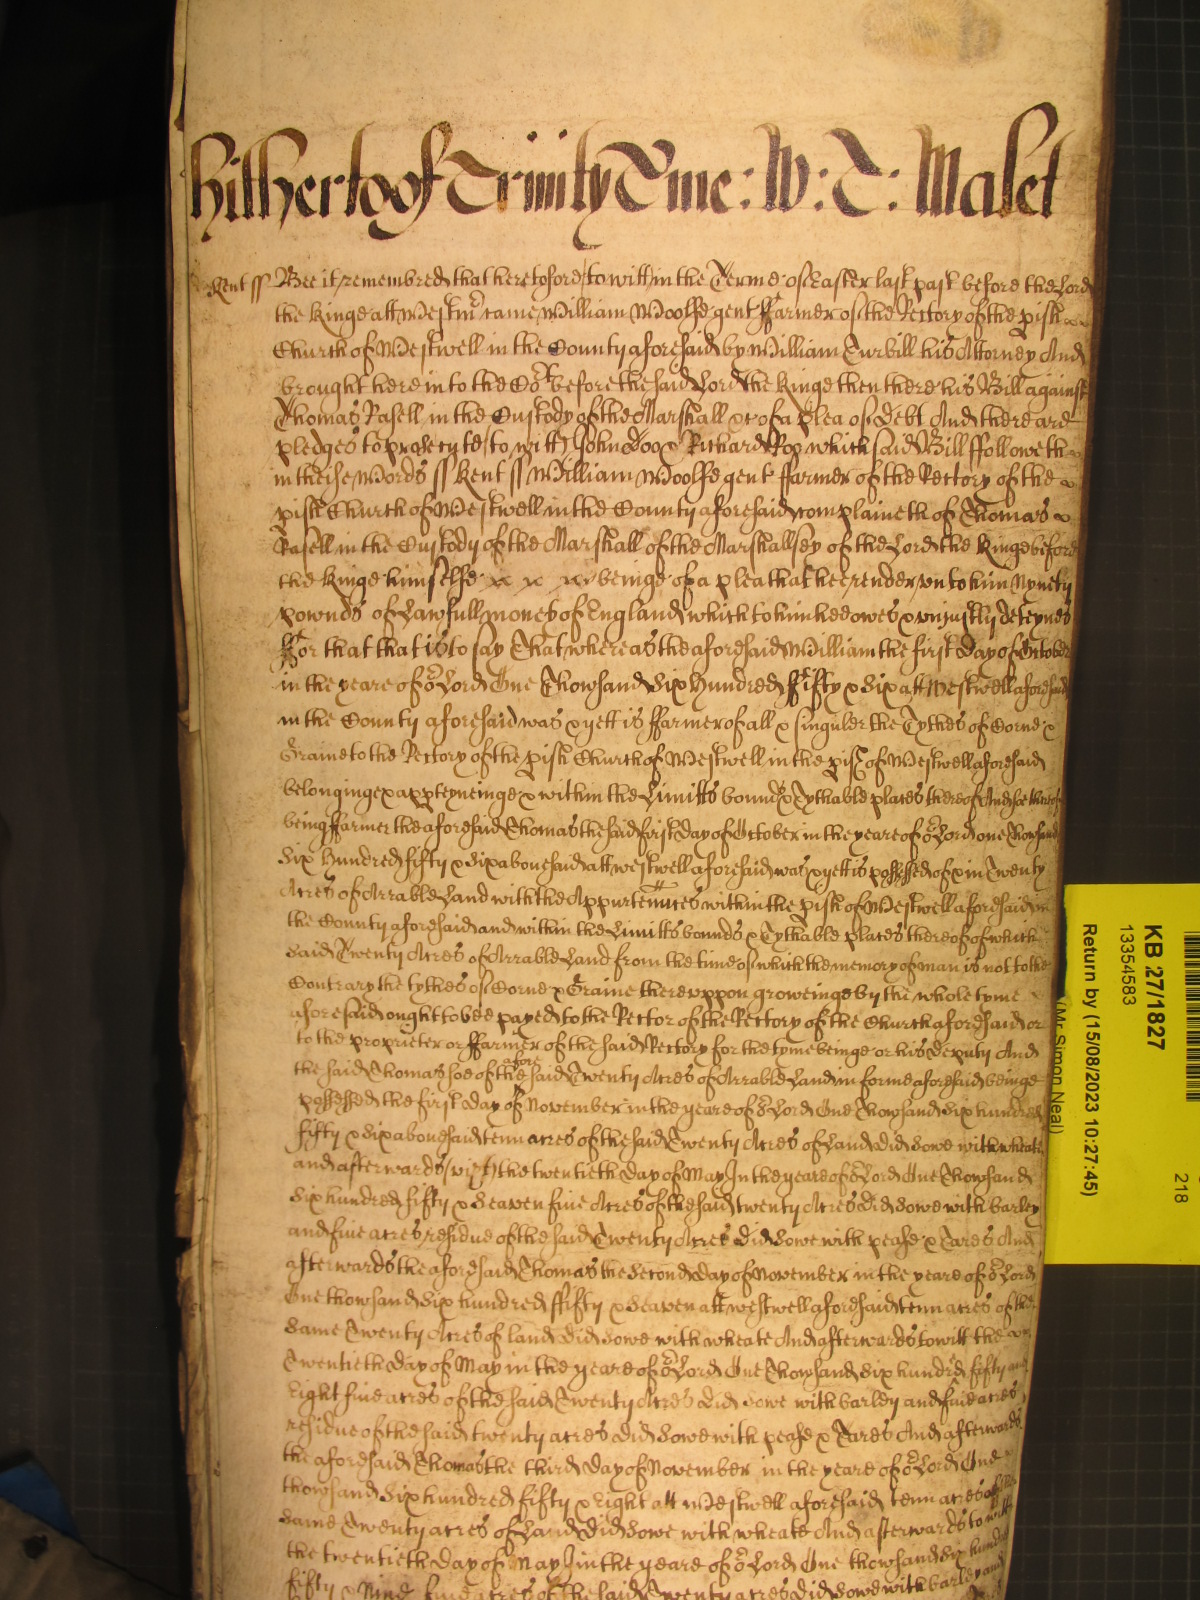 hitherto of Trinity Tme : W : T : Malet
Kent ss Bee it remembred that heretofore to witt in the Terme of Easter last past before the Lord
the Kinge att Westmr came William Woolfe gent ffarmer of the Rectory of the pish
Church of Westwell in the County aforesaid by William Turbill his Attorney And
brought here into the Cort before the said Lord the Kinge then there his Bill against
Thomas Rasell in the Custody of the Marshall &c of a plea of debt And there are
pledges to prosecute to witt John Doo & Richard Roo which said Bill ffolloweth
in theise Words ss Kent ss William Woolfe gent ffarmer of the Rectory of the
pish Church of Westwell in the County aforesaid complaineth of Thomas
Rasell in the Custody of the Marshall of the Marshallsey of the Lord the Kinge before
the Kinge himselfe beinge of a plea that hee render unto him Nynety
pownds of Lawfull money of England which to him hee owes & unjustly deteynes
For that that is to say That whereas the aforesaid William the first Day of October
in the yeare of or Lord One Thowsand Six Hundred ffifty & Six att Westwell aforesaid
in the County aforesaid was & yett is ffarmer of all & singuler the Tythes of Corne &
Graine to the Rectory of the pish Church of Westwell in the pish of Westwell aforesaid
belonginge & apperteyneinge & within the Limitts bounds & Tythable places thereof And soe thereof
being ffarmer the aforesaid Thomas the said first Day of October in the yeare of or Lord one Thowsand
Six Hundred fifty & Six abouesaid att westwell aforesaid was & yett is possessed of & in Twenty
Acres of Arrable Land with the Appurtennces within the pish of Westwell aforesaid in
the County aforesaid and within the Limitts bounds & Tythable places thereof of which
said Twenty Acres of Arrable Land from the time of which the memory of man is not to the
Contrary the tythes of Corne & Graine thereuppon groweinge by the whole tyme
aforesaid ought to bee payed to the Rector of the Rectory of the Church aforesaid or
to the proprieter or ffarmer of the said Rectory for the tyme beinge or his Deputy And
the said Thomas soe of the afore said Twenty Acres of Arrable Land in forme aforesaid beinge
possessed the first day of November in the yeare of or Lord One Thowsand Six hundred
fifty & Six abouesaid tenn acres of the said Twenty Acres of Land did Sowe with wheate
and afterwards the twentieth Day of May In the yeare of or Lord One Thowsand
Six hundred fifty & Seaven fiue Acres of the said twenty Acres did Sowe with barley
and fiue acres residue of the said Twenty Acres did Sowe with pease & Tares And
afterwards the aforesaid Thomas the Second day of November in the yeare of or Lord
One thowsand Six hundred ffifty & Seaven att westwell aforesaid tenn acres of the
Same Twenty Acres of land did Sowe with wheate And afterwards to witt the
Twentieth day of May in the yeare of or Lord One Thowsand Six hundred fifty and
Eight fiue acres of the said Twenty Acres did Sowe with barley and fiue acres
residue of the said twenty acres did Sowe with pease & Tares And afterwards
the aforesaid Thomas the third day of November in the yeare of or Lord One
thowsand Six hundred fifty & Eight att Westwell aforesaid tenn acres of the
Same Twenty acres of Land did Sowe with wheate And afterwards to witt
the twentieth Day of May In the yeare of or Lord One thowsand Six hundred
fifty & Nine fiue acres of the said Twenty acres did Sowe with barley and
KB 27/1827
13354583
Return by (15/08/2023 10:27:45)
(Mr Simon Neal)
218